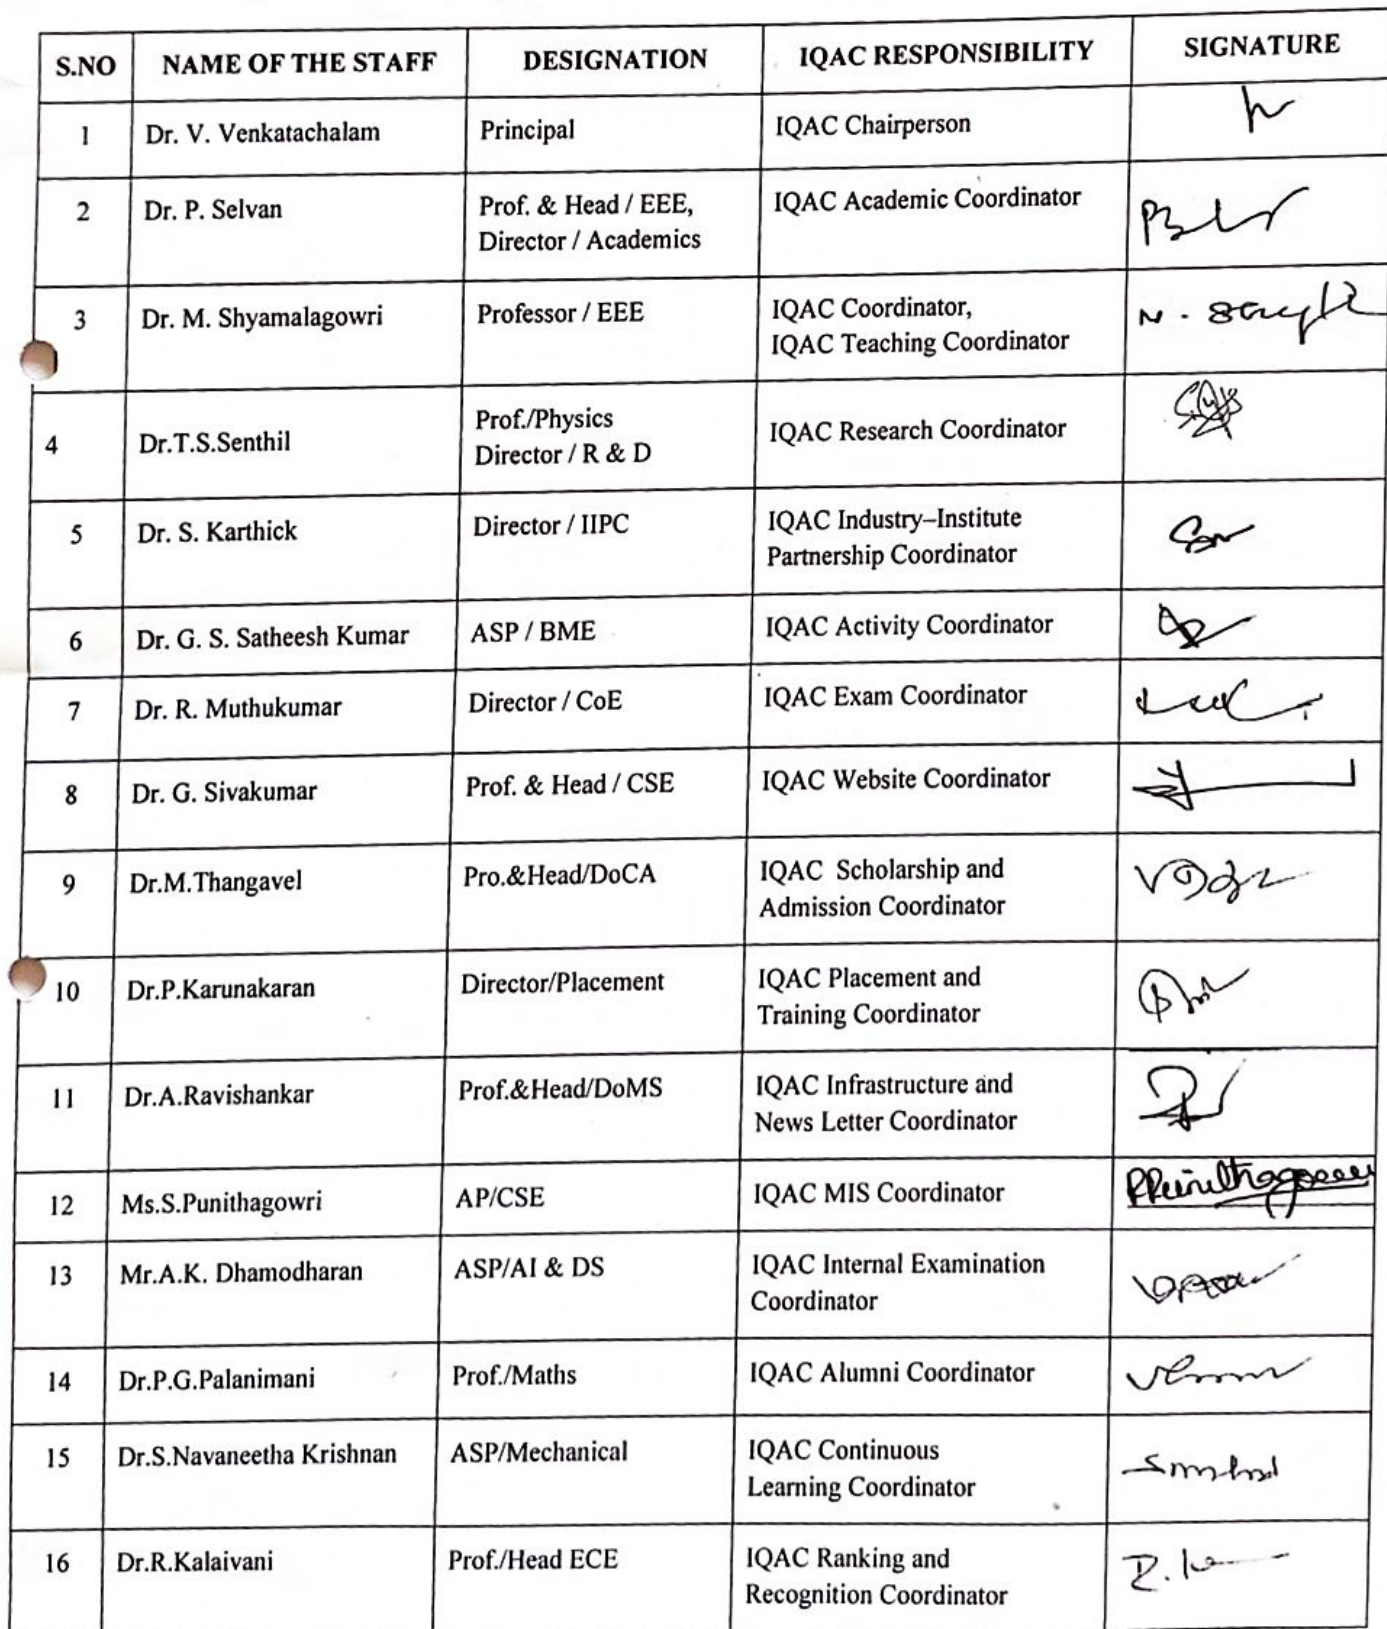 S.NO NAME OF THE STAFF DESIGNATION IQAC RESPONSIBILITY SIGNATURE
1 Dr. V. Venkatachalam Principal IQAC Chairperson
2 Dr. P. Selvan Prof. & Head / EEE, IQAC Academic Coordinator
Director / Academics
3 Dr. M. Shyamalagowri Professor / EEE IQAC Coordinator,
IQAC Teaching Coordinator
4 Dr.T.S.Senthil Prof./Physics IQAC Research Coordinator
Director / R & D
5 Dr. S. Karthick Director / IIPC IQAC Industry–Institute
Partnership Coordinator
6 Dr. G. S. Satheesh Kumar ASP / BME IQAC Activity Coordinator
7 Dr. R. Muthukumar Director / CoE IQAC Exam Coordinator
8 Dr. G. Sivakumar Prof. & Head / CSE IQAC Website Coordinator
9 Dr.M.Thangavel Pro.&Head/DoCA IQAC Scholarship and
Admission Coordinator
10 Dr.P.Karunakaran Director/Placement IQAC Placement and
Training Coordinator
11 Dr.A.Ravishankar Prof.&Head/DoMS IQAC Infrastructure and
News Letter Coordinator
12 Ms.S.Punithagowri AP/CSE IQAC MIS Coordinator
13 Mr.A.K. Dhamodharan ASP/AI & DS IQAC Internal Examination
Coordinator
14 Dr.P.G.Palanimani Prof./Maths IQAC Alumni Coordinator
15 Dr.S.Navaneetha Krishnan ASP/Mechanical IQAC Continuous
Learning Coordinator
16 Dr.R.Kalaivani Prof./Head ECE IQAC Ranking and
Recognition Coordinator